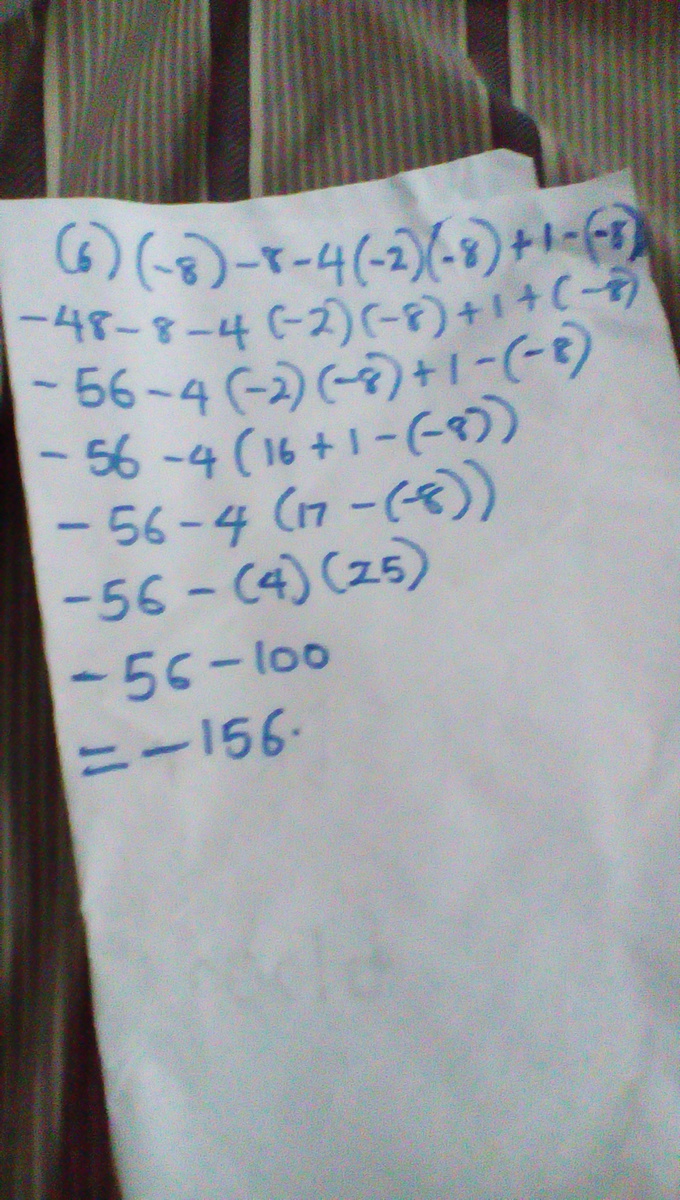 (6)(-8)-8-4(-2)(-8)+1-(-8)
-48-8-4(-2)(-8)+1+(-8)
-56-4(-2)(-8)+1-(-8)
-56-4(16+1-(-8))
-56-4(17-(-8))
-56-(4)(25)
-56-100
=-156.